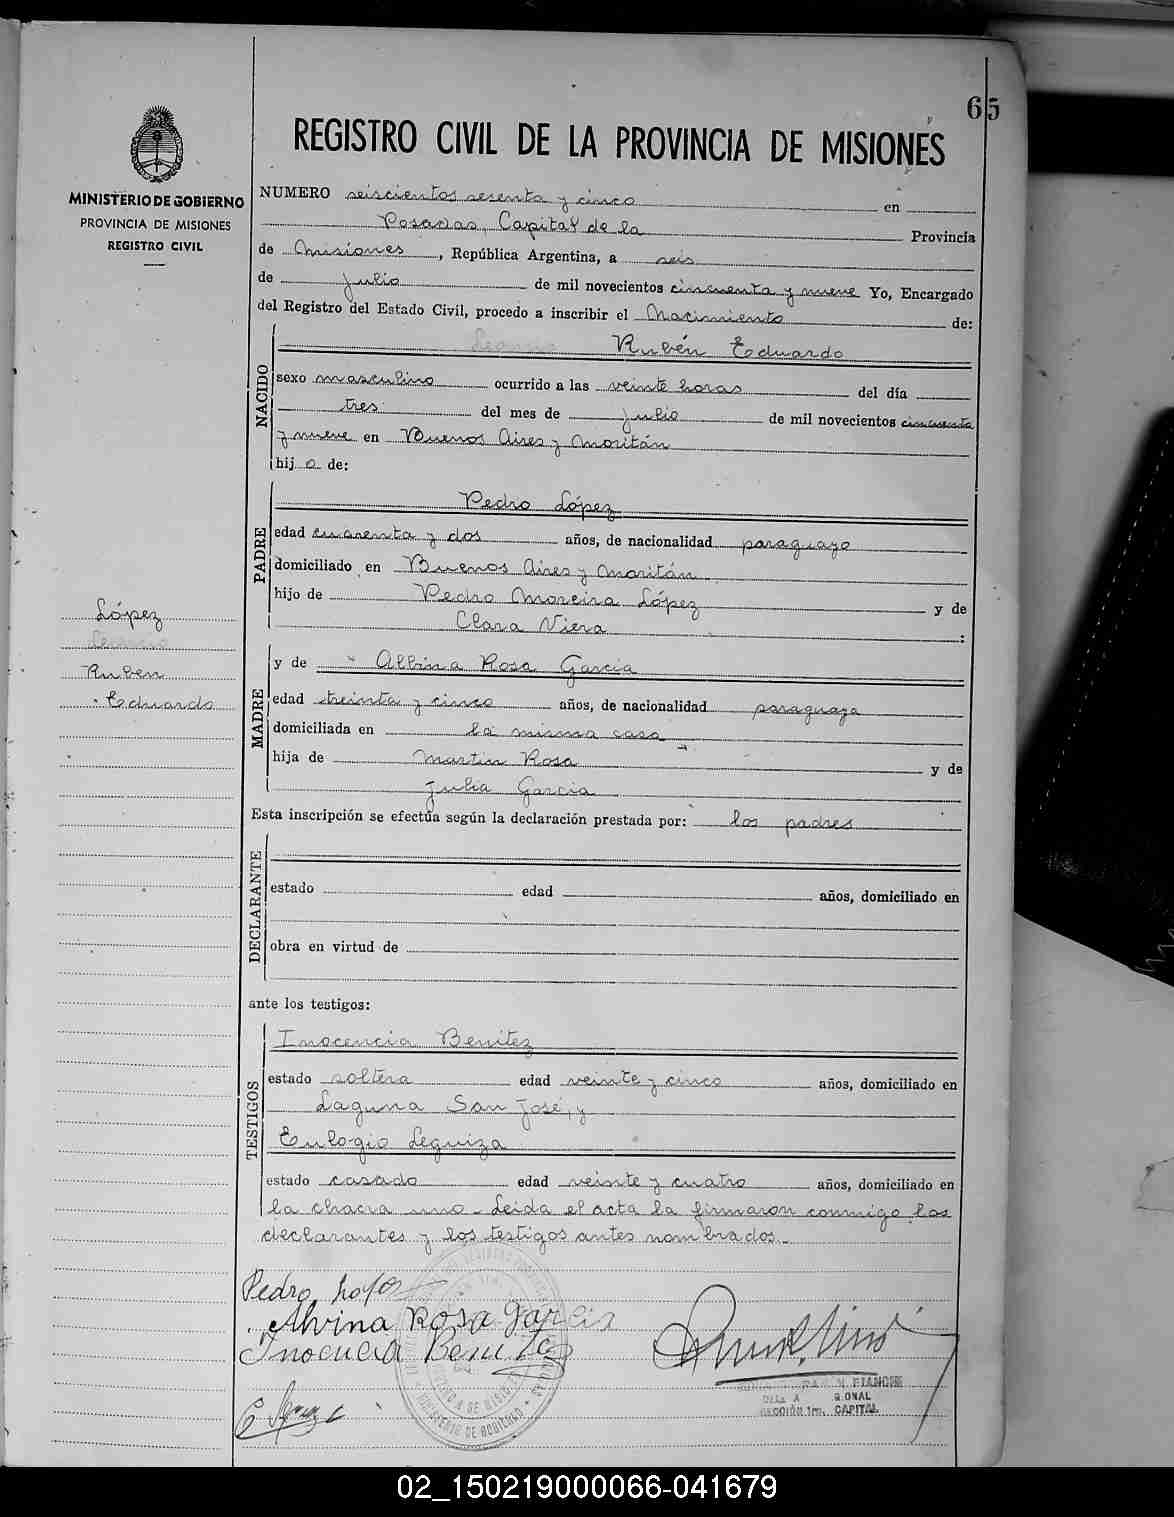 65
REGISTRO CIVIL DE LA PROVINCIA DE MISIONES
MINISTERIO DE GOBIERNO
PROVINCIA DE MISIONES
REGISTRO CIVIL
NUMERO seiscientos sesenta y cinco en
Posadas, Capital de la Provincia
de Misiones, República Argentina, a seis
de Julio de mil novecientos cincuenta y nueve Yo, Encargado
del Registro del Estado Civil, procedo a inscribir el Nacimiento de:
NACIDO
Rubén Eduardo
sexo masculino ocurrido a las veinte horas del día
tres del mes de Julio de mil novecientos cincuenta
y nueve en Buenos Aires y Moritán
hij o de:
PADRE
Pedro López
edad cuarenta y dos años, de nacionalidad paraguayo
domiciliado en Buenos Aires y Moritán
hijo de Pedro Moreira López y de
Clara Viera :
López
Ruben
Eduardo
MADRE
y de Albina Rosa Garcia
edad treinta y cinco años, de nacionalidad paraguaya
domiciliada en la misma casa
hija de Martin Rosa y de
Julia Garcia
Esta inscripción se efectúa según la declaración prestada por: los padres
DECLARANTE
estado edad años, domiciliado en
obra en virtud de
ante los testigos:
TESTIGOS
Inocencia Benitez
estado soltera edad veinte y cinco años, domiciliado en
Laguna San José, y
Eulogio Leguiza
estado casado edad veinte y cuatro años, domiciliado en
la chacra uno - Leida el acta la firmaron conmigo los
declarantes y los testigos antes nombrados.-
Pedro
Alvina Rosa Garcia
CAPITAL
02_150219000066-041679